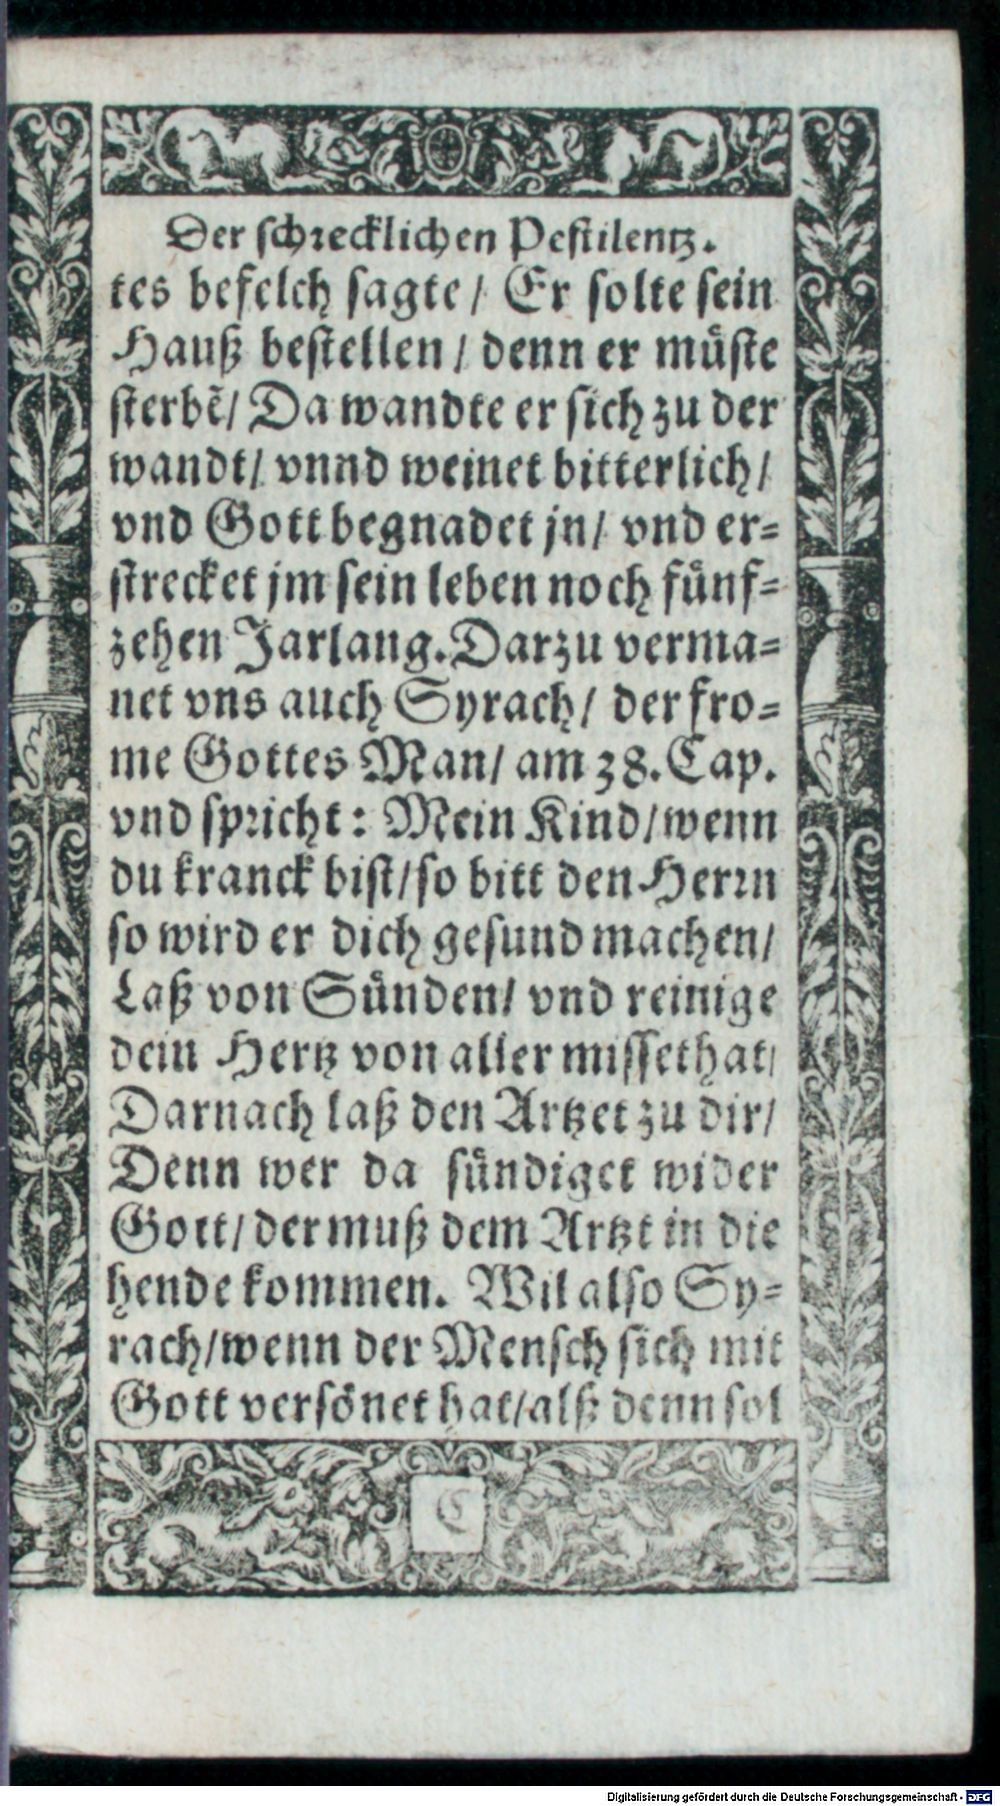 Der schrecklichen Pestilentz.
tes befelch sagte / Er solte sein
Hauß bestellen / denn er müste
sterbẽ / Da wandte er sich zu der
wandt / vnnd weinet bitterlich /
vnd Gott begnadet jn / vnd er=
strecket jm sein leben noch fünf=
zehen Jarlang. Darzu verma=
net vns auch Syrach / der fro=
me Gottes Man / am 38. Cap.
vnd spricht: Mein Kind / wenn
du kranck bist / so bitt den Herrn
so wird er dich gesund machen /
Laß von Sünden / vnd reinige
dein Hertz von aller missethat /
Darnach laß den Artzet zu dir /
Denn wer da sündiget wider
Gott / der muß dem Artzt in die
hende kommen. Wil also Sy=
rach / wenn der Mensch sich mit
Gott versönet hat / alß denn sol
C
Digitalisierung gefördert durch die Deutsche Forschungsgemeinschaft - DFG